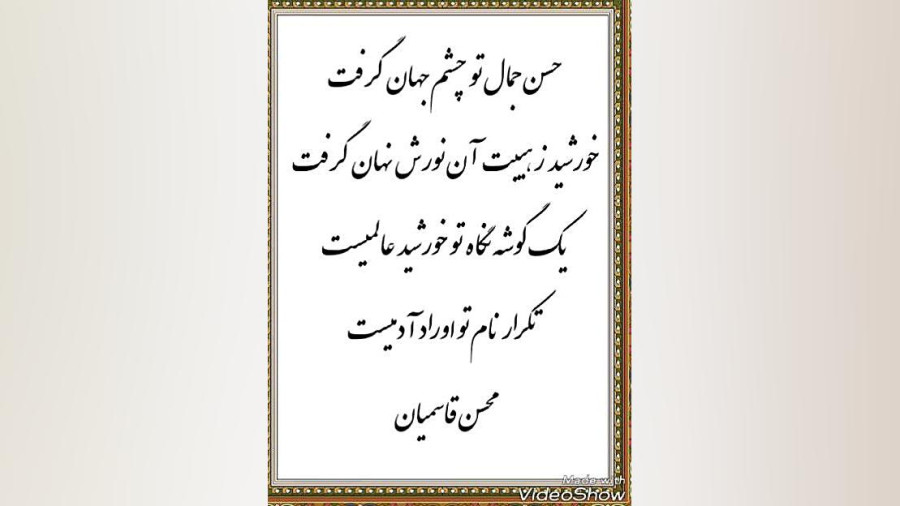 حسن جمال تو چشم جهان گرفت
خورشید ز هیبت آن نورش نهان گرفت
یک گوشه نگاه تو خورشید عالمیست
تکرار نام تو اوراد آدمیست
محسن قاسمیان
Made with
VideoShow